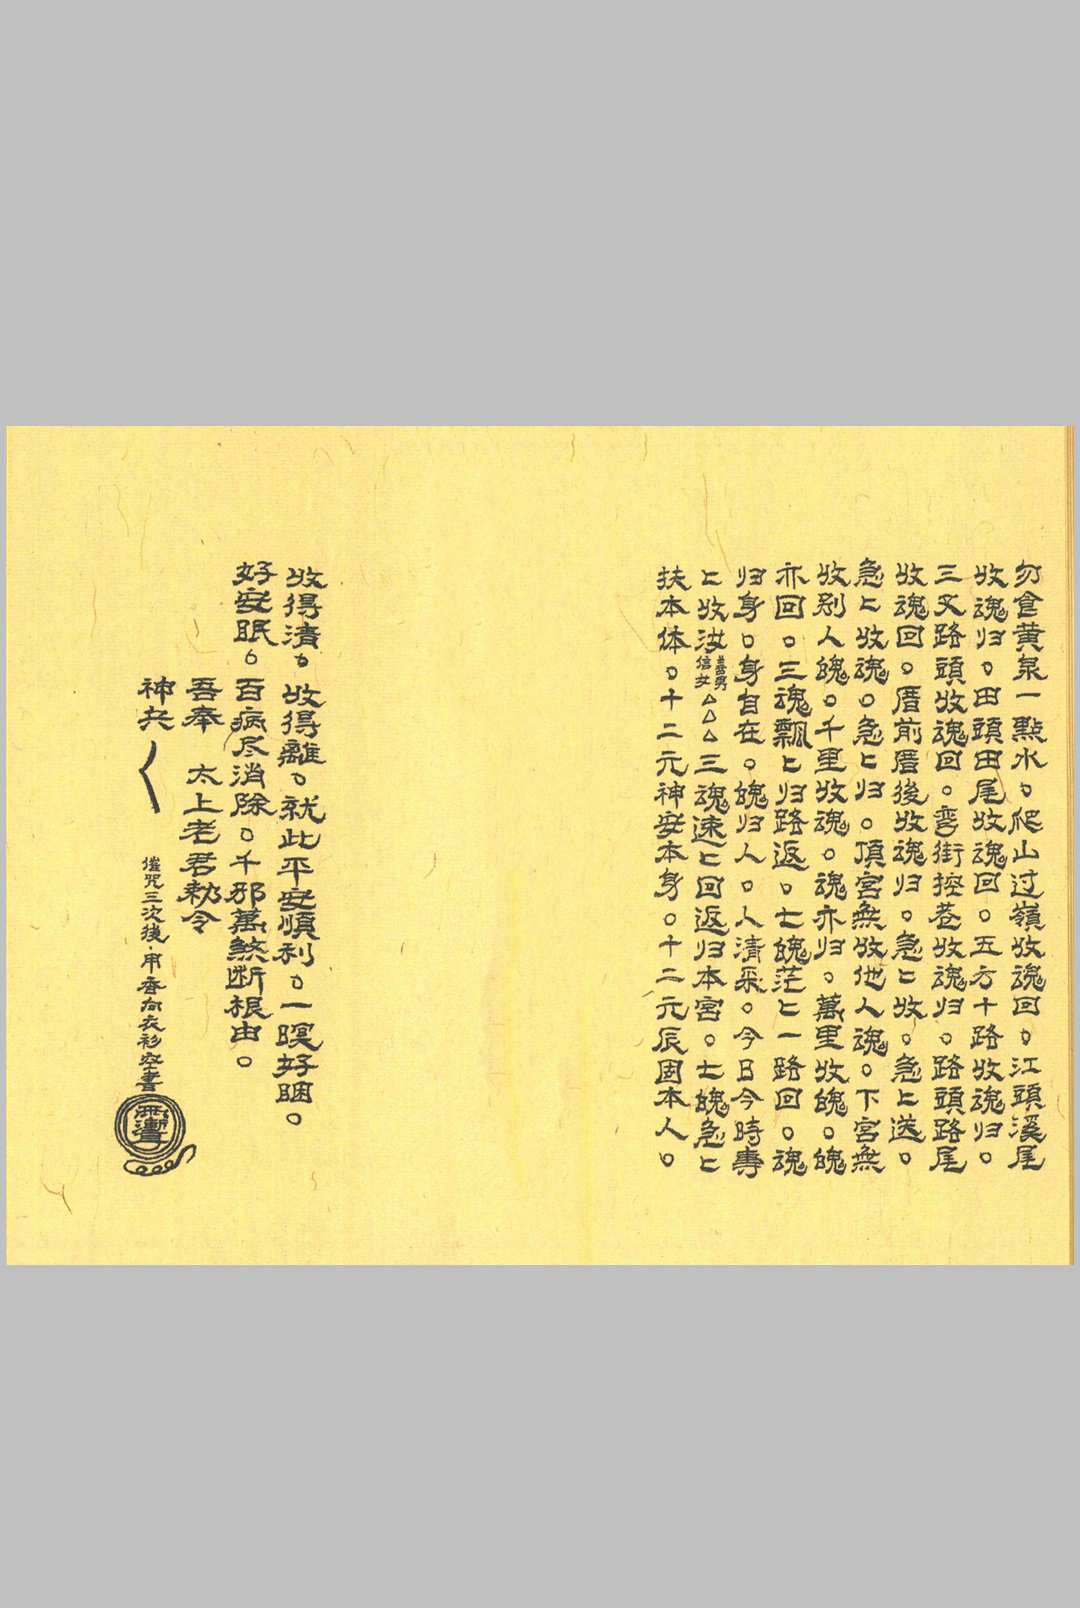 勿食黄泉一點水。爬山过嶺收魂回。江頭溪尾
收魂归。田頭田尾收魂回。五方十路收魂归。
三叉路頭收魂回。弯街控巷收魂归。路頭路尾
收魂回。厝前厝後收魂归。急匕收。急匕送。
急匕收魂。急匕归。頂宫無收他人魂。下宫無
收别人魄。千里收魂。魂亦归。萬里收魄。魄
亦回。三魂飄匕归路返。七魄茫匕一路回。魂
归身。身自在。魄归人。人清采。今日今時專
匕收汝善男信女△△△三魂速匕回返归本宫。七魄急匕
扶本体。十二元神安本身。十二元辰固本人。
收得清。收得離。就此平安順利。一暝好睏。
好安眠。百病尽消除。千邪萬煞断根由。
吾奉 太上老君勅令
神兵
催咒三次後．用香向衣衫空書